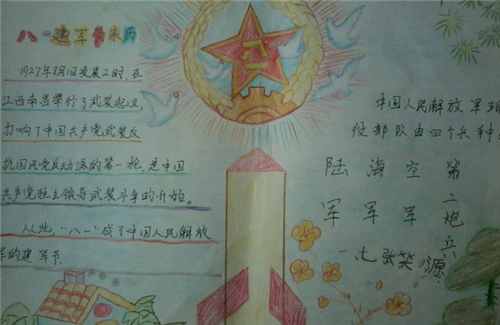 八一建军节来历
1927年8月1日凌晨2时,在
江西南昌举行了武装起义,
打响了中国共产党武装反
抗国民党反动派的第一枪,是中国
共产党独立领导武装斗争的开始。
从此,"八一"成了中国人民解放
军的建军节。
八一
中国人民解放军
役部队由四个兵种
陆军
海军
空军
第二炮兵
一.七 张笑源